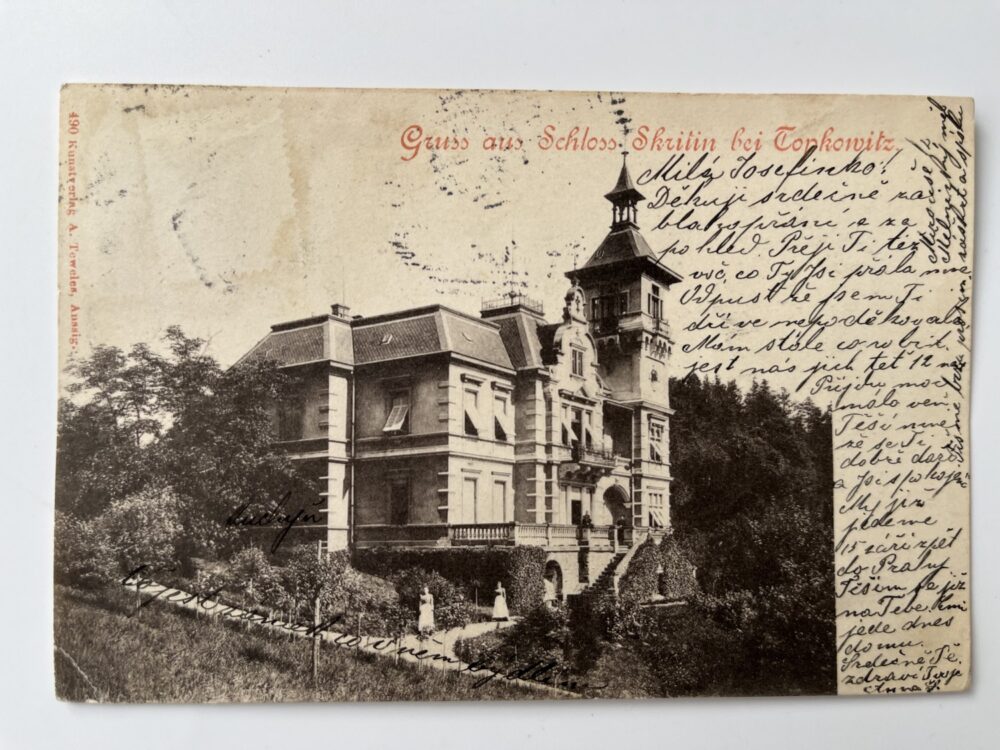 Gruss aus Schloss Skritin bei Topkowitz.
490 Kunstverlag A. Teweles, Aussig.
Milá Josefinko!
Děkuji srdečně za
blahopřání a za
pohled. Přeji Ti též
vše, co Ty Jsi přála mne
Odpusť že jsem Ti
dříve nepoděkovala
Mám stále co robit
jest nás jich teť 12 na
málo ven.
Těší mne
že se Ti
dobře daří
a Jsi spokojená
My již
jedeme
15 září zpět
do Prahy
Těším se již
na Tebe
jede dnes
domu.
Srdečně Tě
zdraví Tvoje
kuchyň
to jest zámek co v něm bydlím